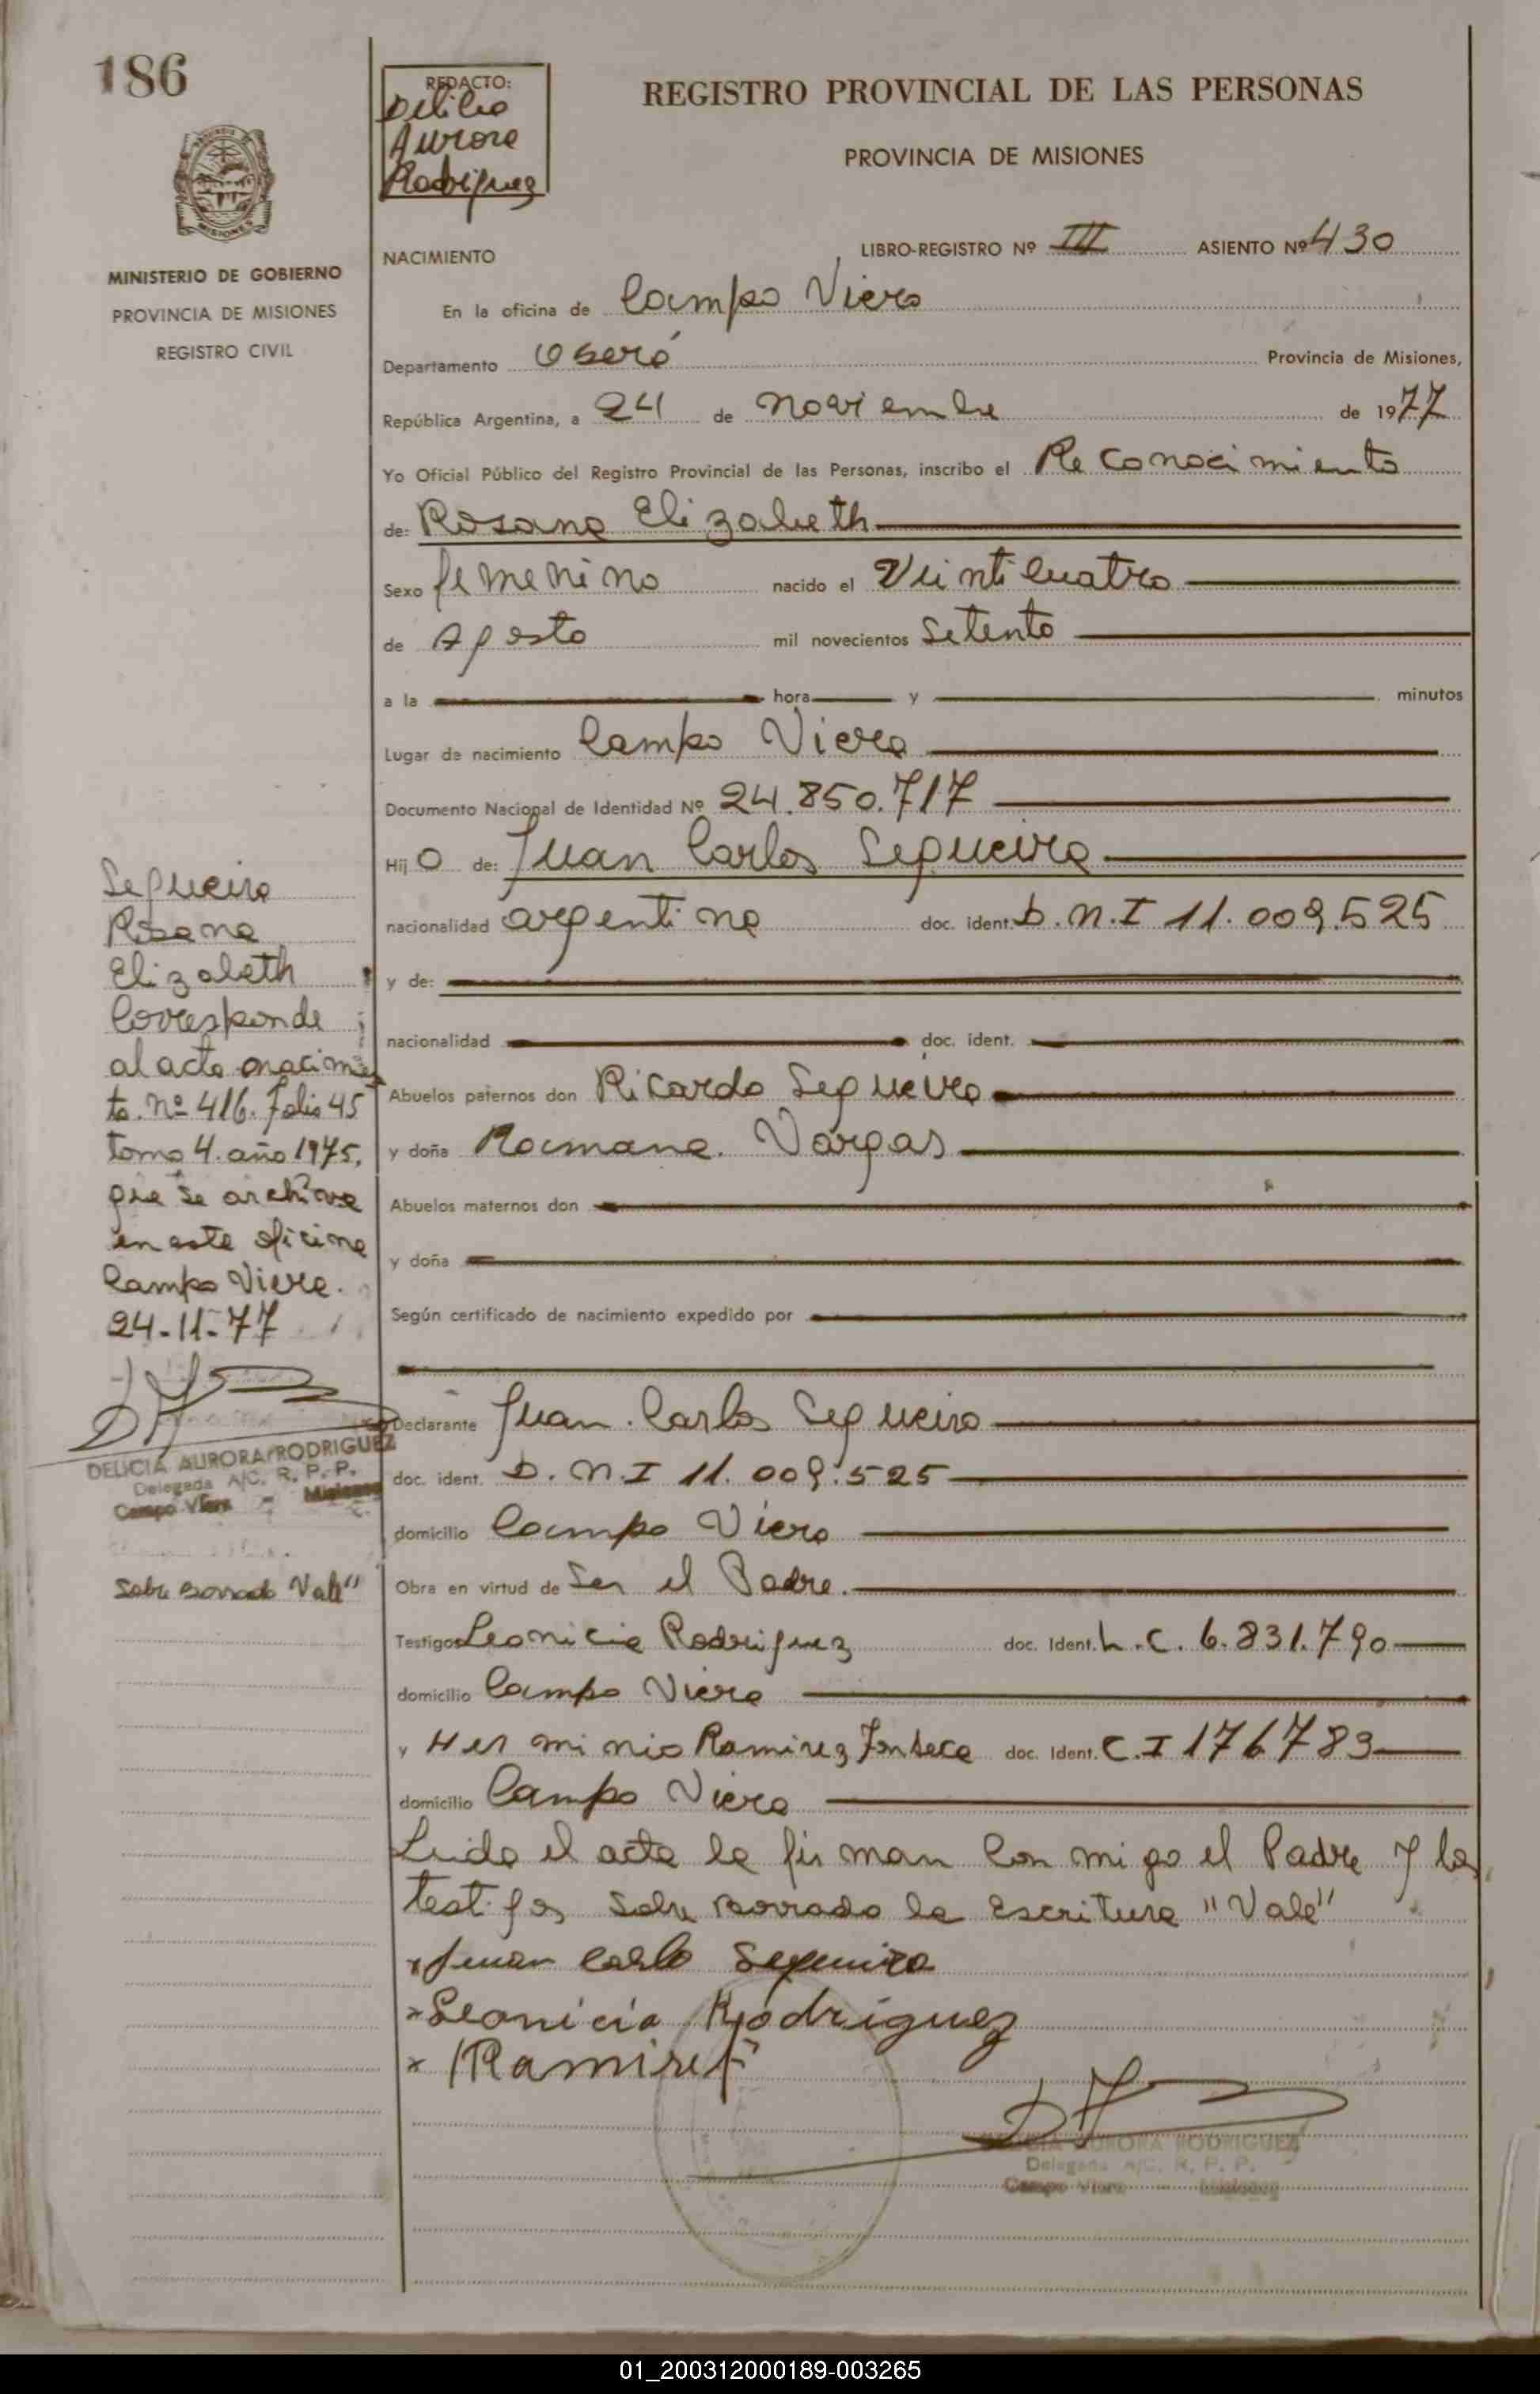 186
REDACTO:
Delicia
Aurora
Rodriguez
REGISTRO PROVINCIAL DE LAS PERSONAS
PROVINCIA DE MISIONES
MISIONES
MINISTERIO DE GOBIERNO
PROVINCIA DE MISIONES
REGISTRO CIVIL
NACIMIENTO
LIBRO-REGISTRO Nº III ASIENTO Nº 430
En la oficina de Campo Viera
Departamento Oberá Provincia de Misiones,
República Argentina, a 24 de noviembre de 1977
Yo Oficial Público del Registro Provincial de las Personas, inscribo el Reconocimiento
de: Rosana Elizabeth
Sexo femenino nacido el Veinticuatro
de Agosto mil novecientos Setenta
a la hora y minutos
Lugar de nacimiento Campo Viera
Documento Nacional de Identidad Nº 24.850.717
Hij o de: Juan Carlos Sequeira
nacionalidad argentina doc. ident. D.N.I 11.009.525
y de:
nacionalidad doc. ident.
Abuelos paternos don Ricardo Sequeira
y doña Romana Vargas
Abuelos maternos don
y doña
Según certificado de nacimiento expedido por
Declarante Juan Carlos Sequeira
doc. ident. D.N.I 11.009.525
domicilio Campo Viera
Obra en virtud de Ser el Padre.
Testigos Leonicia Rodriguez doc. Ident. L.C. 6.831.790
domicilio Campo Viera
y Herminio Ramirez Fonseca doc. Ident. C.I 176783
domicilio Campo Viera
Leida el acta la firman conmigo el Padre y los
testigos Sobre borrado la escritura "Vale"
x Juan Carlo Sequeira
x Leonicia Rodriguez
x Ramirez
DELICIA AURORA RODRIGUEZ
Delegada A/C. R. P. P.
Campo Viera - Misiones
Sequeira
Rosana
Elizabeth
Corresponde
al acta nacimien
to. Nº 416. Folio 45
tomo 4. año 1975,
que se archiva
en esta oficina
Campo Viera.
24-11-77
DELICIA AURORA RODRIGUEZ
Delegada A/C. R. P. P.
Campo Viera - Misiones
Sobre borrado Vale"
01_200312000189-003265